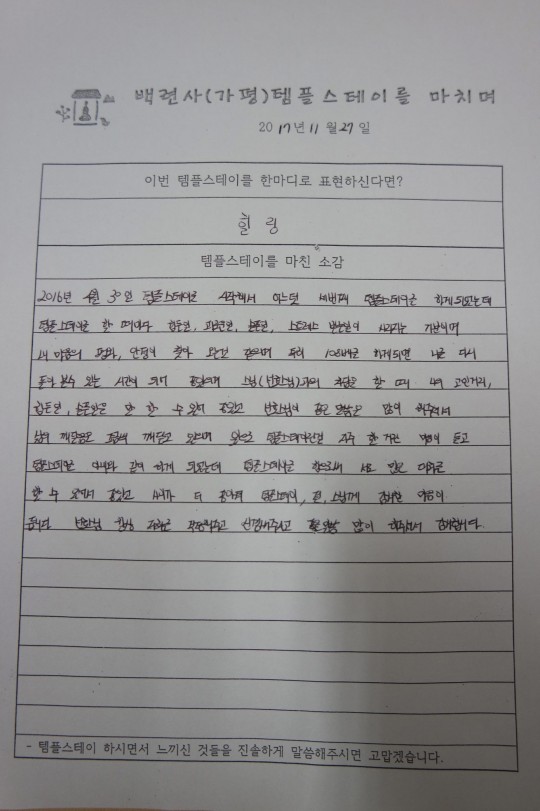 백련사(가평)템플스테이를 마치며
2017년 11월 27일
이번 템플스테이를 한마디로 표현하신다면?
힐링
템플스테이를 마친 소감
2016년 4월 30일 템플스테이를 시작해서 어느덧 세번째 템플스테이를 하게되었는데
템플스테이를 할 때마다 힘든일, 스트레스 받는일이 사라지는 기분이며
내 마음의 평화, 안정이 찾아 같으며 특히 108배를 하게되면 나를 다시
돌아 볼수 있는 시간이 되어 좋았으며 스님(법화님)과의 차담을 할 때 나의 고민거리,
힘든일, 슬픈일을 말 할 수 있어 좋았고 법화님이 좋은 말씀을 많이 해주셔서
삶의 깨달음을 깨닫고 있으며 템플스테이 자주 할거란 마음이 듣고
템플스테이를 같이 하게 되었는데 템플스테이를 서로 많은 대화를
할 수 있어서 좋았고 사이가 더 좋아져 템플스테이, 절, 스님께 감사한 마음이
법화님 항상 저희를 걱정해주고 신경써주시고 많이 해주셔서 감사합니다.
- 템플스테이 하시면서 느끼신 것들을 진솔하게 말씀해주시면 고맙겠습니다.